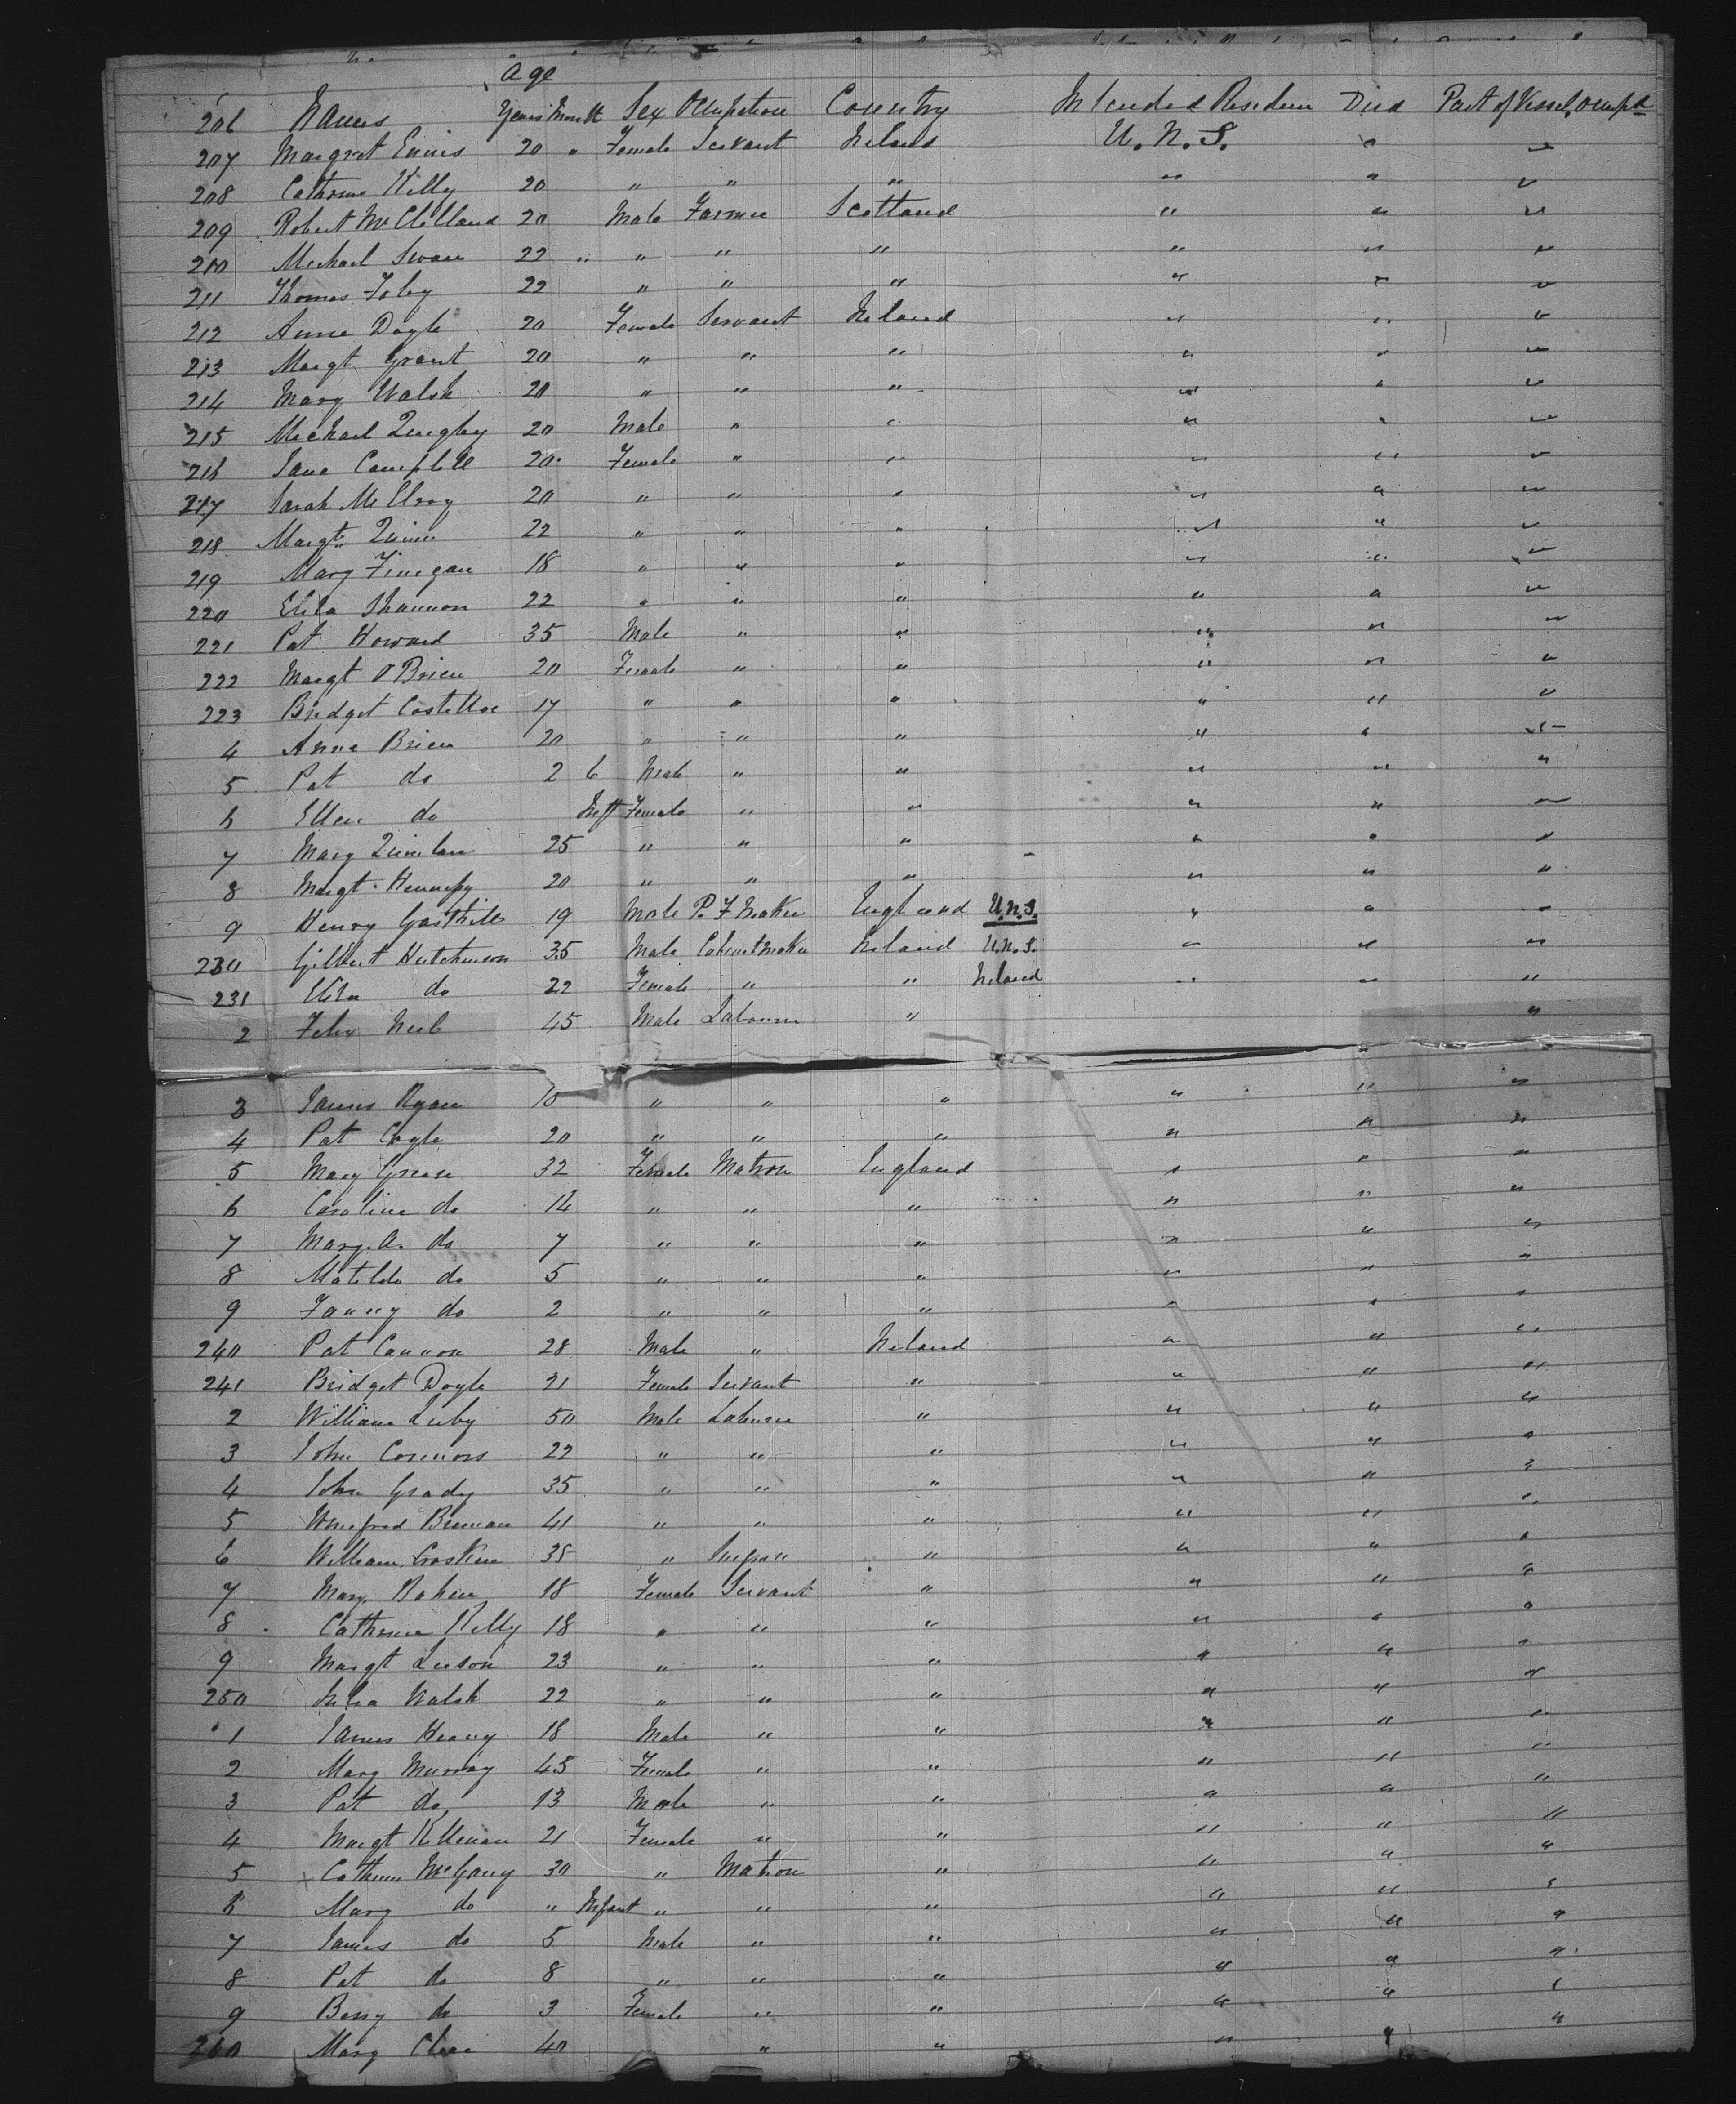 Age
206 Names Years Month Sex Occupation Country Intended Residence Died Part of Vessel occupd
207 Margret Ennis 20 " Female Servant Ireland U. N. S. " "
208 Catherine Killy 20 " " " " " "
209 Robert McClelland 20 Male Farmer Scotland " " "
210 Michael Swan 22 " " " " " " "
211 Thomas Foley 22 " " " " " "
212 Anne Doyle 20 Female Servant Ireland " " "
213 Margt Grant 20 " " " " " "
214 Mary Walsh 20 " " " " " "
215 Michael Quigley 20 Male " " " " "
216 Jane Campbell 20 Female " " " " "
217 Sarah McElroy 20 " " " " " "
218 Margt Quinn 22 " " " " " "
219 Mary Finegan 18 " " " " " "
220 Eliza Shannon 22 " " " " " "
221 Pat Howard 35 Male " " " " "
222 Margt O Brien 20 Female " " " " "
223 Bridget Costelloe 17 " " " " " "
4 Anne Brien 20 " " " " " "
5 Pat do 2 6 Male " " " " "
6 Ellen do Inft Female " " " " "
7 Mary Quinlan 25 " " " " " "
8 Margt Hennesy 20 " " " " " "
9 Henry Gaskill 19 Male P. F Maker England U.N.S. " " "
230 Gilbert Hutchinson 35 Male Cabinetmaker Ireland U.N.S. " " "
231 Eliza do 22 Female " " Ireland " " "
2 Felix 45 Male Labourer " "
3 James Ryan " " " " " "
4 Pat Coyle 20 " " " " " "
5 Mary 32 Female Matron England " " "
6 Caroline do 14 " " " " " "
7 Mary. A. do 7 " " " " " "
8 Matilda do 5 " " " " " "
9 Fanny do 2 " " " " " "
240 Pat Cannon 28 Male " Ireland " " "
241 Bridget Doyle 21 Female Servant " " " "
2 William Luby 50 Male Labourer " " " "
3 John Connors 22 " " " " " "
4 John Grady 35 " " " " " "
5 Winefred Brennan 41 " " " " " "
6 William 35 " Surgeon " " " "
7 Mary 18 Female Servant " " " "
8 Catherine Killy 18 " " " " " "
9 Margt Leeson 23 " " " " " "
250 Julia Walsh 22 " " " " " "
1 James Heavy 18 Male " " " " "
2 Mary Murray 45 Female " " " " "
3 Pat do 13 Male " " " " "
4 Margt 21 Female " " " " "
5 Catherine McGarry 30 " Matron " " " "
6 Mary do " Infant " " " " " "
7 James do 5 Male " " " " "
8 Pat do 8 " " " " " "
9 Bessy do 3 Female " " " " "
260 Mary 40 " " " " "